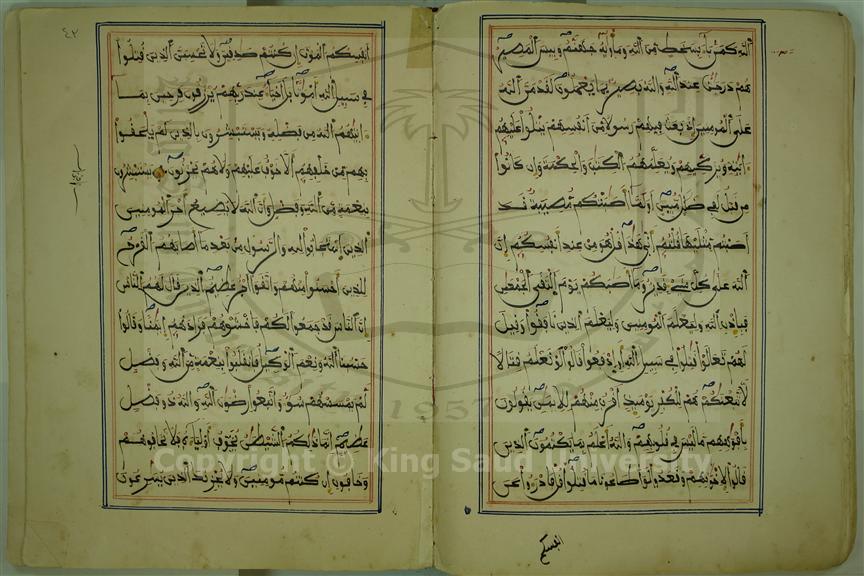 الله كمن باء بسخط من الله ومأويه جهنم وبيس المصير
هم درجت عند الله والله بصير بما يعملون لقد من الله
على المومنين اذ بعث فيهم رسولا من انفسهم يتلوا عليهم
ءايته ويزكيهم ويعلمهم الكتب والحكمة وان كانوا
من قبل لفي ضلل مبين اولما اصبتكم مصيبة قد
اصبتم مثليها قلتم انى هذا قل هو من عند انفسكم ان
الله على كل شيء قدير وما اصبكم يوم التقى الجمعن
فبإذن الله وليعلم المومنين وليعلم الذين نافقوا وقيل
لهم تعالوا قتلوا في سبيل الله او ادفعوا قالوا لو نعلم قتالا
لاتبعنكم هم للكفر يومئذ اقرب منهم للايمن يقولون
بافوههم ما ليس في قلوبهم والله اعلم بما يكتمون الذين
قالوا لإخونهم وقعدوا لو اطاعونا ما قتلوا قل فادرءوا عن
انفسكم
٤٢
انفسكم الموت ان كنتم صدقين ولا تحسبن الذين قتلوا
في سبيل الله أموتا بل أحياء عند ربهم يرزقون فرحين بما
ءاتيهم الله من فضله ويستبشرون بالذين لم يلحقوا
بهم من خلفهم ألا خوف عليهم ولا هم يحزنون يستبشرون
بنعمة من الله وفضل وان الله لا يضيع أجر المومنين
الذين استجابوا لله والرسول من بعد ما أصابهم القرح
للذين أحسنوا منهم واتقوا أجر عظيم الذين قال لهم الناس
ان الناس قد جمعوا لكم فاخشوهم فزادهم إيمنا وقالوا
حسبنا الله ونعم الوكيل فانقلبوا بنعمة من الله وفضل
لم يمسسهم سوء واتبعوا رضون الله والله ذو فضل
عظيم انما ذلكم الشيطن يخوف أولياءه فلا تخافوهم
وخافون ان كنتم مومنين ولا يحزنك الذين يسرعون
1957
Copyright © King Saud University